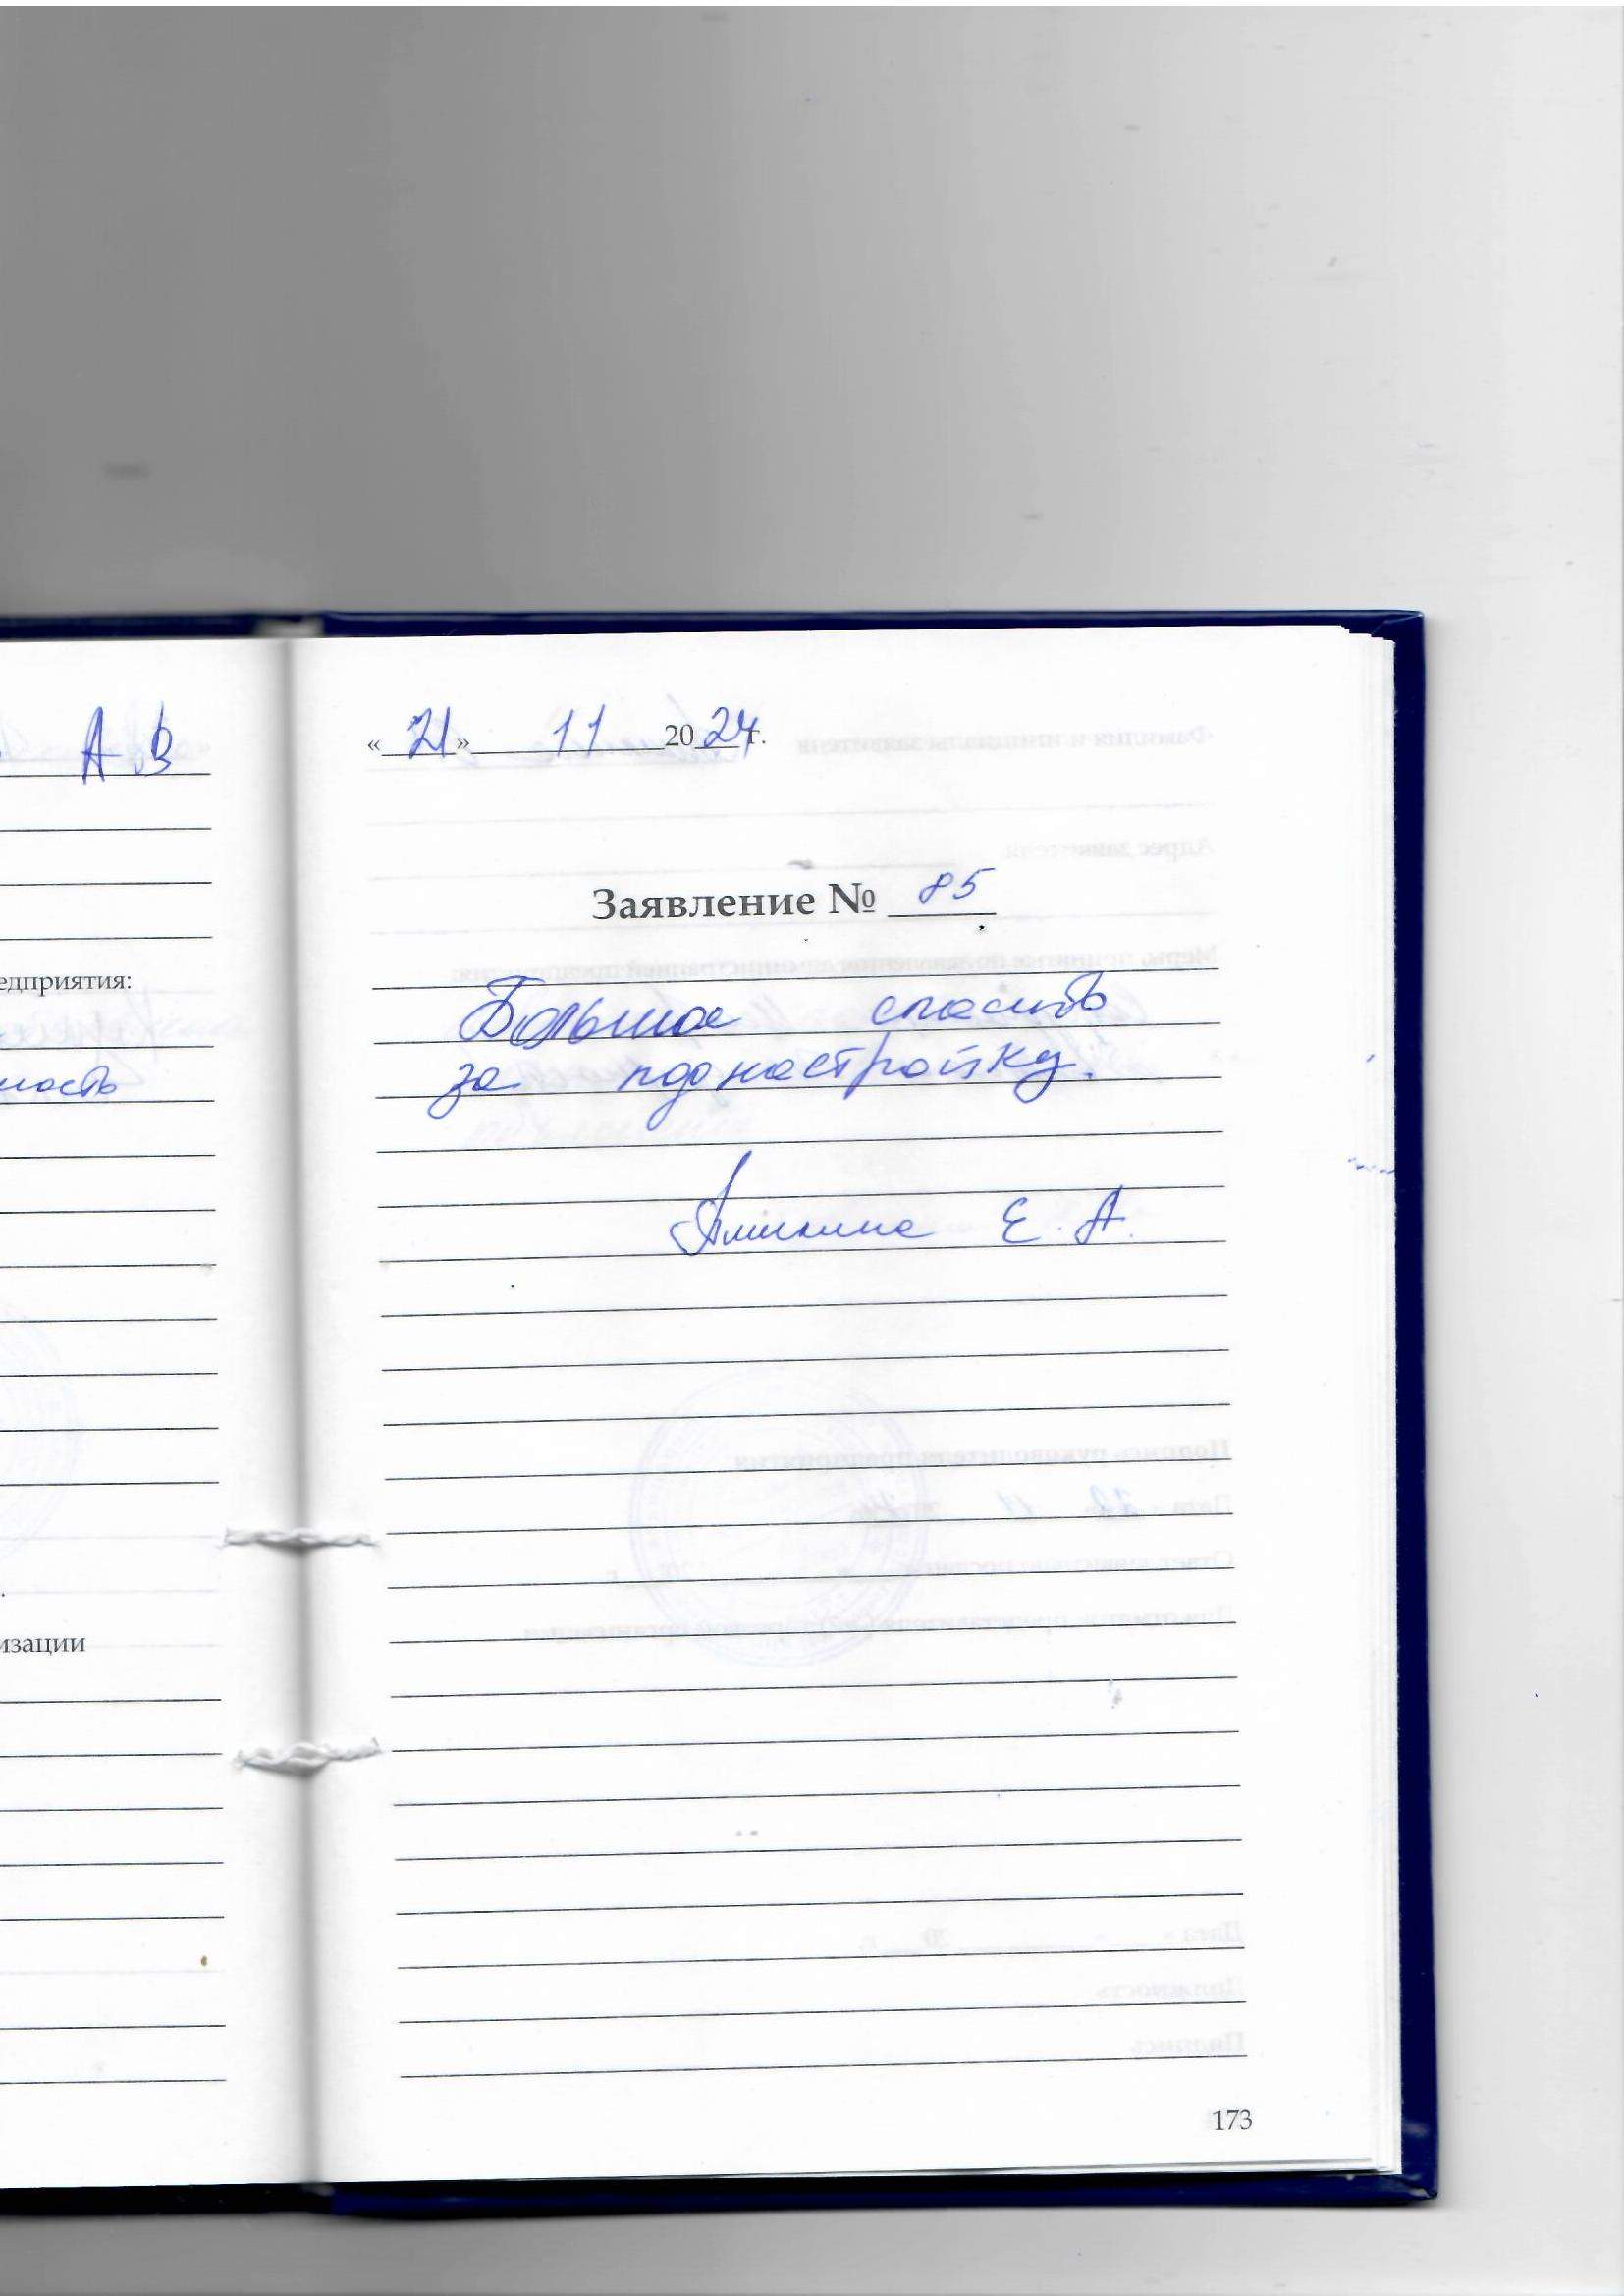 А.В
едприятия:
ность
изации
« 21 » 11 2024 г.
Заявление № 85
Большое спасибо
за поднастройку.
Е. А.
173